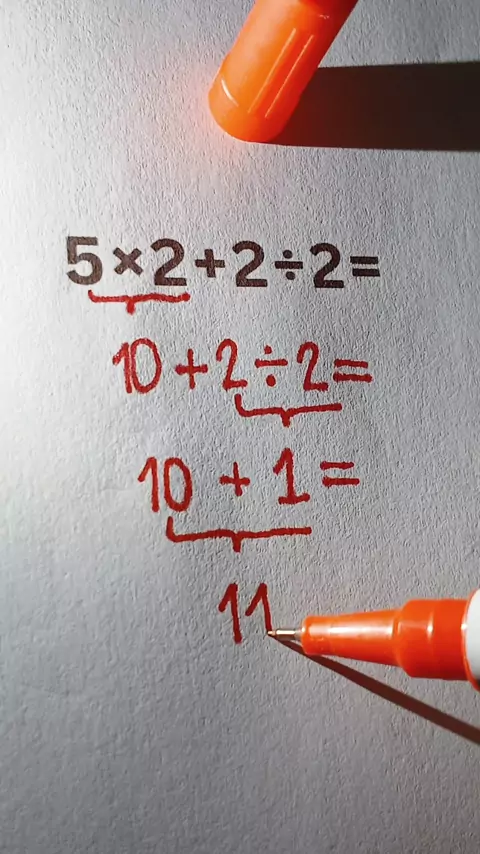 5×2+2÷2=
10+2÷2=
10+1=
11